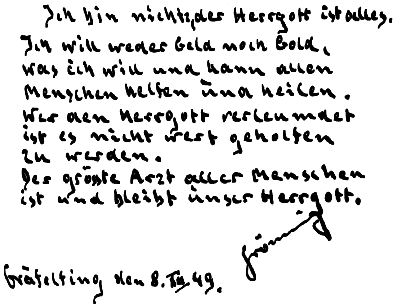 Ich bin nichts, der Herrgott ist alles.
Ich will weder Geld noch Gold,
was ich will und kann allen
Menschen helfen und heilen.
Wer den Herrgott verleumdet
ist es nicht wert geholfen
zu werden.
Der größte Arzt aller Menschen
ist und bleibt unser Herrgott.
Gröning
Gräfelfing den 8. XII. 49.